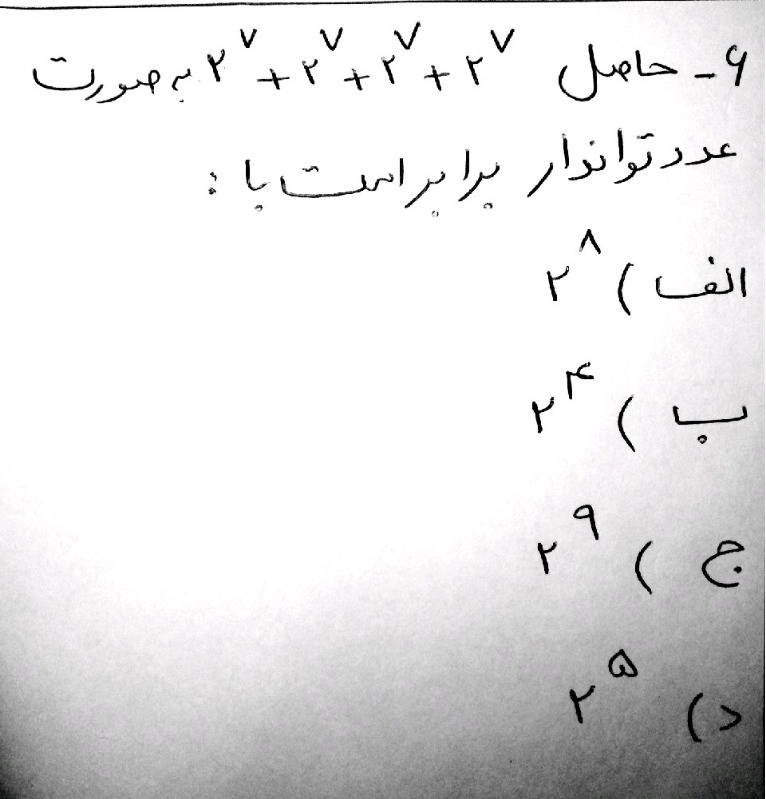 ۶- حاصل ۲^۷ + ۲^۷ + ۲^۷ + ۲^۷ به صورت
عدد تواندار برابر است با :
الف ) ۲^۸
ب ) ۲^۴
ج ) ۲^۹
د) ۲^۵